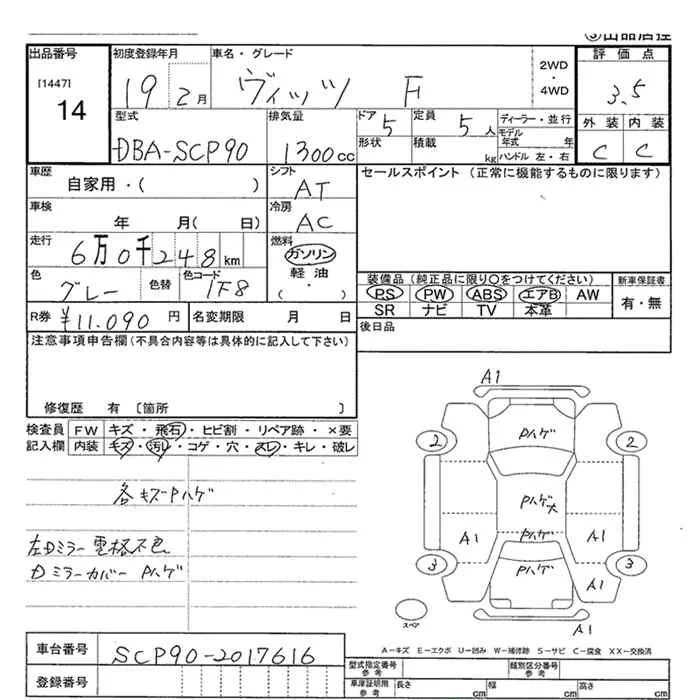 出品番号 初度登録年月 車名・グレード 2WD・4WD 評価点
[1447]
14 19 2月 ヴィッツ F 3.5
型式 排気量 ドア 5 定員 5人 ディーラー・並行 外装 内装
DBA-SCP90 1300cc 形状 積載 kg モデル年式 年 ハンドル 左・右 C C
車歴 自家用・( ) シフト AT セールスポイント(正常に機能するものに限ります)
車検 年 月( 日) 冷房 AC
走行 6万0千248km 燃料 ガソリン・軽油・( )
色 グレー 色替 色コード 1F8 装備品(純正品に限り○をつけてください) 新車保証書
PS PW ABS エアB AW 有・無
SR ナビ TV 本革
R券 ¥11.090円 名変期限 月 日 後日品
注意事項申告欄(不具合内容等は具体的に記入して下さい)
修復歴 有 〔箇所 〕
検査員 FW キズ・飛石・ヒビ割・リペア跡・×要
記入欄 内装 キズ・汚レ・コゲ・穴・スレ・キレ・破レ
各キズPハゲ
左Dミラー電格不良
Dミラーカバー Pハゲ
A1
Pハゲ
2 2
Pハゲ大
A1 Pハゲ A1
3 Pハゲ A1 3
スペア A1
A-キズ E-エクボ U-凹み W-補修跡 S-サビ C-腐食 XX-交換済
車台番号 SCP90-2017616
登録番号
型式指定番号 参考 類別区分番号 参考
車庫証明用 参考 長さ cm 幅 cm 高さ cm